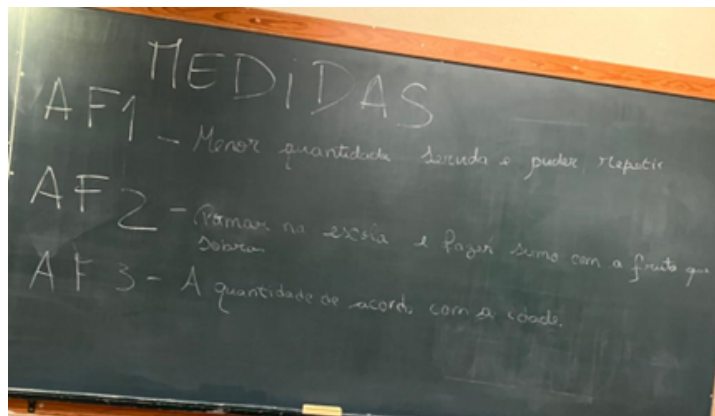 MEDIDAS
AF1 - Menor quantidade servida e puder repetir
AF2 - Pomar na escola e fazer sumo com a fruta que
sobra.
AF3 - A quantidade de acordo com a idade.